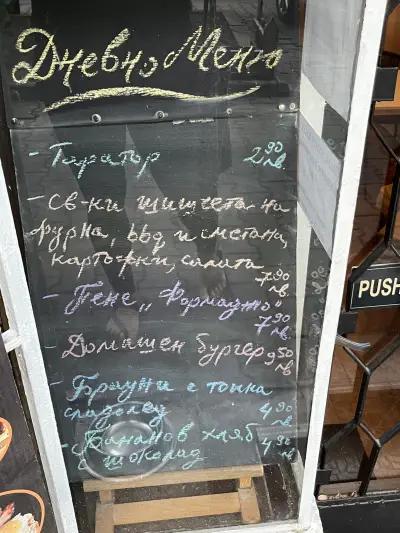 Дневно Меню
- Таратор 2,90 лв.
- Св-ки шишчета на
фурна, bbq и сметана,
картофки, салата
7,90 лв.
- Пене „Формаджо"
7,90 лв.
- Домашен бургер 9,50 лв
- Брауни с топка
сладолед 4,90 лв
- Бананов хляб
с шоколад 4,90 лв
PUSH